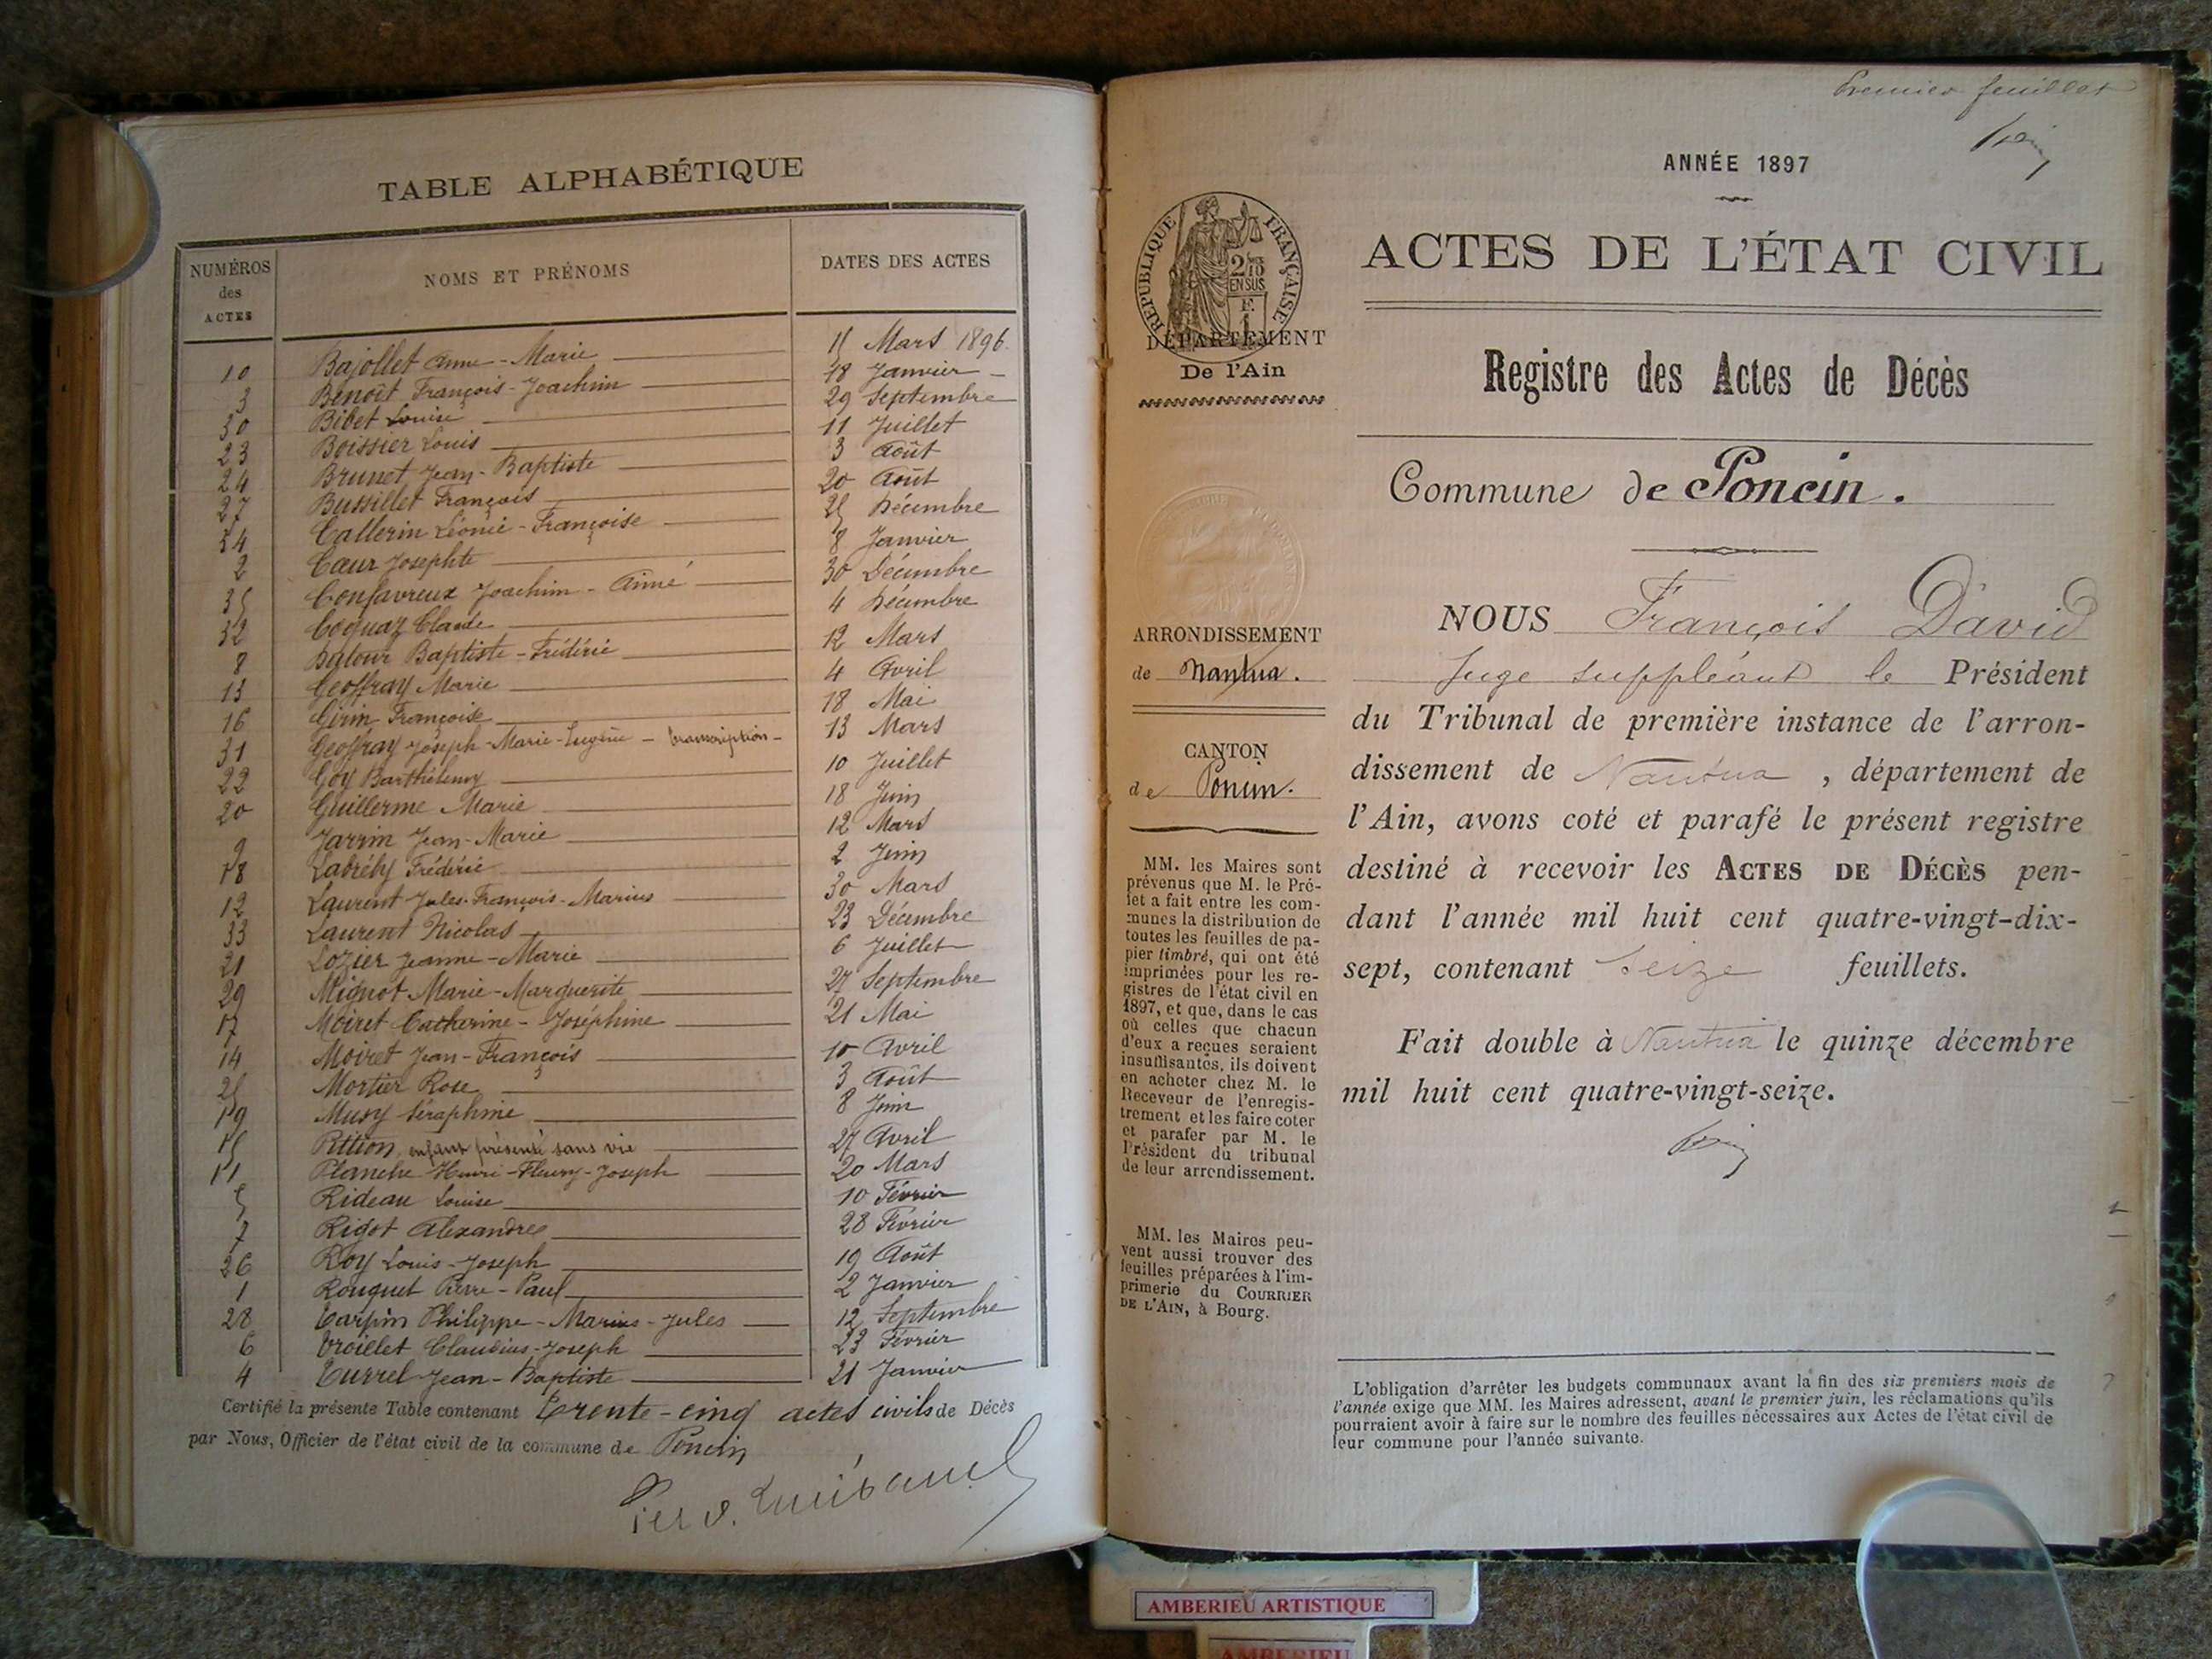 TABLE ALPHABÉTIQUE
NUMÉROS des ACTES
NOMS ET PRÉNOMS
DATES DES ACTES
10 Bajollet Anne-Marie 15 Mars 1896
3 Benoît François-Joachim 18 Janvier
30 Bibet Louise 29 Septembre
23 Boissier Louis 11 Juillet
24 Brunet Jean-Baptiste 3 Août
27 Bussillet François 20 Août
34 Callerin Léonie-Françoise 25 Décembre
2 Cœur Josephte 8 Janvier
35 Confavreux Joachim-Aimé 30 Décembre
32 Coquaz Claude 4 Décembre
8 Dalour Baptiste-Frédéric 12 Mars
13 Geoffray Marie 4 Avril
16 Girin Françoise 18 Mai
31 Geoffray Joseph-Marie-Eugène - transcription - 13 Mars
22 Goy Barthélemy 10 Juillet
20 Guillerme Marie 18 Juin
9 Jarrin Jean-Marie 12 Mars
18 Labréby Frédéric 2 Juin
12 Laurent Jules-François-Marius 30 Mars
33 Laurent Nicolas 23 Décembre
21 Lozier Jeanne-Marie 6 Juillet
29 Mignot Marie-Marguerite 27 Septembre
17 Moiret Catherine-Joséphine 21 Mai
14 Moiret Jean-François 10 Avril
25 Mortier Rose 3 Août
19 Musy Séraphine 8 Juin
15 Pittion, enfant présenté sans vie 27 Avril
11 Planche Henri-Fleury-Joseph 20 Mars
5 Rideau Louise 10 Février
7 Rigot Alexandre 28 Février
26 Roy Louis-Joseph 19 Août
1 Rouquet Pierre-Paul 2 Janvier
28 Tarpin Philippe-Marius-Jules 12 Septembre
6 Troillet Claudius-Joseph 23 Février
4 Turrel Jean-Baptiste 21 Janvier
Certifié la présente Table contenant Trente-cinq actes civils de Décès
par Nous, Officier de l'état civil de la commune de Poncin
Premier feuillet
ANNÉE 1897
ACTES DE L'ÉTAT CIVIL
Registre des Actes de Décès
Commune de Poncin.
RÉPUBLIQUE FRANÇAISE
2/10 EN SUS
F. 1
DÉPARTEMENT
De l'Ain
ARRONDISSEMENT
de Nantua.
CANTON
de Poncin.
MM. les Maires sont
prévenus que M. le Pré-
fet a fait entre les com-
munes la distribution de
toutes les feuilles de pa-
pier timbré, qui ont été
imprimées pour les re-
gistres de l'état civil en
1897, et que, dans le cas
où celles que chacun
d'eux a reçues seraient
insuffisantes, ils doivent
en acheter chez M. le
Receveur de l'enregis-
trement et les faire coter
et parafer par M. le
Président du tribunal
de leur arrondissement.
MM. les Maires peu-
vent aussi trouver des
feuilles préparées à l'im-
primerie du COURRIER
DE L'AIN, à Bourg.
NOUS François David
Juge suppléant le Président
du Tribunal de première instance de l'arron-
dissement de Nantua, département de
l'Ain, avons coté et parafé le présent registre
destiné à recevoir les ACTES DE DÉCÈS pen-
dant l'année mil huit cent quatre-vingt-dix-
sept, contenant Seize feuillets.
Fait double à Nantua le quinze décembre
mil huit cent quatre-vingt-seize.
L'obligation d'arrêter les budgets communaux avant la fin des six premiers mois de
l'année exige que MM. les Maires adressent, avant le premier juin, les réclamations qu'ils
pourraient avoir à faire sur le nombre des feuilles nécessaires aux Actes de l'état civil de
leur commune pour l'année suivante.
AMBERIEU ARTISTIQUE
AMBERIEU